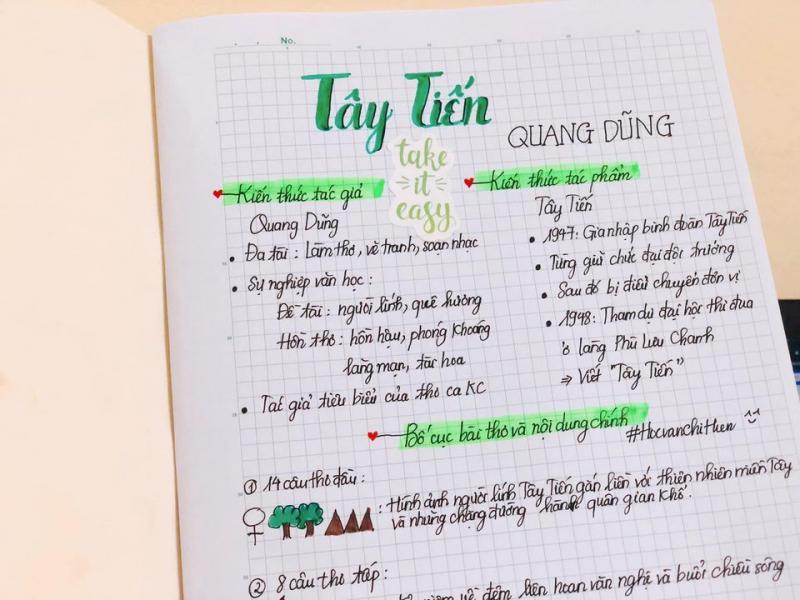 No.
Tây Tiến
QUANG DŨNG
take
it
easy
Kiến thức tác giả
Quang Dũng
• Đa tài: Làm thơ, vẽ tranh, soạn nhạc
• Sự nghiệp văn học:
Đề tài: người lính, quê hương
Hồn thơ: hồn hậu, phóng khoáng
lãng mạn, tài hoa
• Tác giả tiêu biểu của thơ ca KC
Kiến thức tác phẩm
Tây Tiến
• 1947: Gia nhập binh đoàn Tây Tiến
• Từng giữ chức đại đội trưởng
• Sau đó bị điều chuyển đơn vị
• 1948: Tham dự đại hội thi đua
ở làng Phù Lưu Chanh
⇒ Viết "Tây Tiến"
Bố cục bài thơ và nội dung chính
#Hocvanchihien
① 14 câu thơ đầu:
: Hình ảnh người lính Tây Tiến gắn liền với thiên nhiên miền Tây
và những chặng đường hành quân gian khổ.
② 8 câu thơ tiếp:
niệm về đêm liên hoan văn nghệ và buổi chiều sông